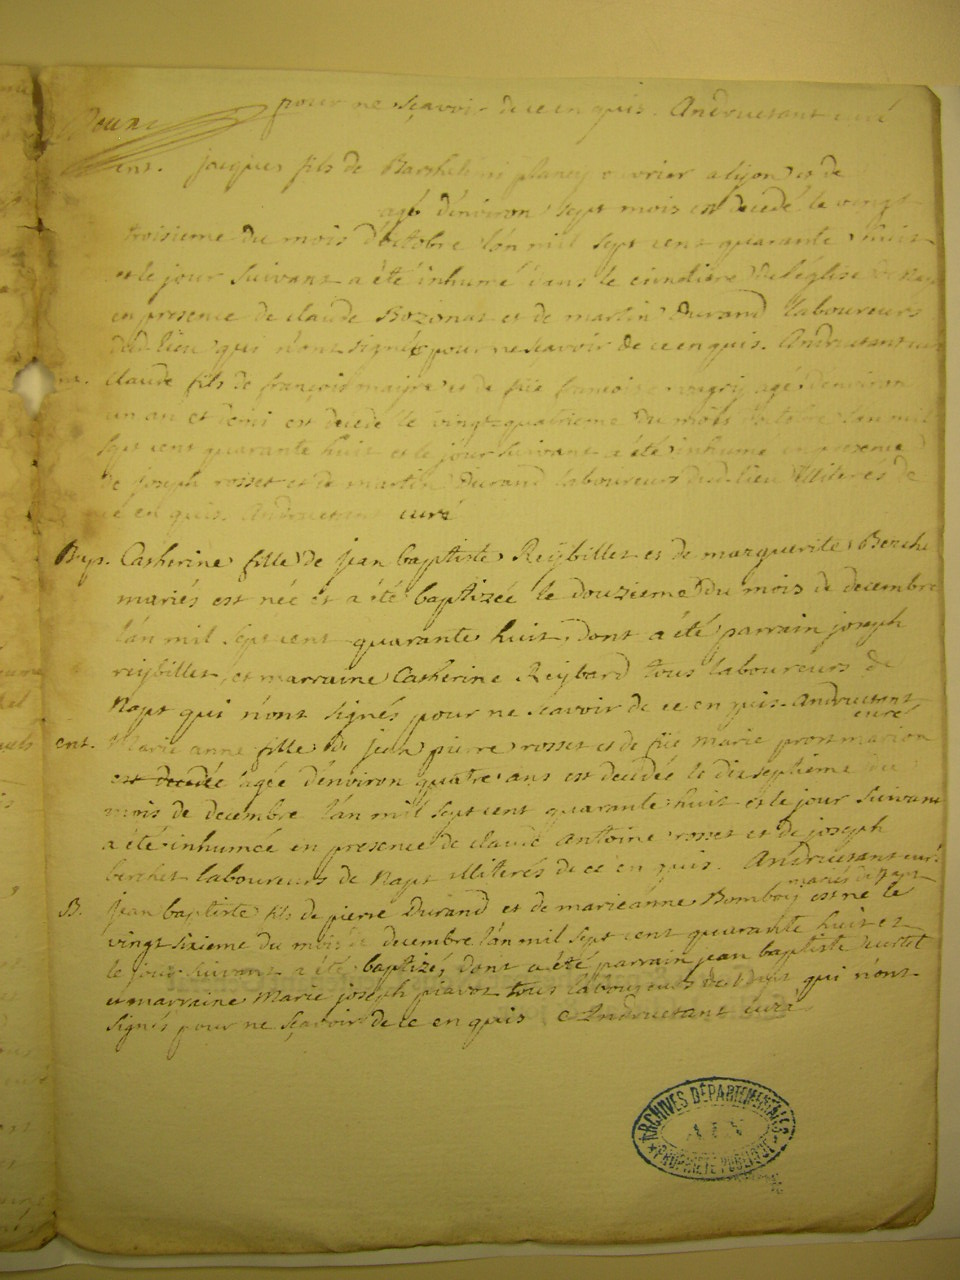 pour ne sçavoir de ce en quis. Andruetant curé
ent. jacques fils de Barthelemi plancy ouvrier a lijon et de
agé d'environ sept mois est decedé le vingt
troisieme du mois d'octobre l'an mil sept cent quarante huit
et le jour suivant a été inhumé dans le cimetiere de l'église de
en presence de claude Bozonat et de martin Durand laboureurs
dud. lieu qui n'ont signé pour ne scavoir de ce en quis. Andruetant curé
claude fils de françois maijre et de füe francoise agé d'environ
un an et demi est decedé le vingt quatrieme du mois d'octobre l'an mil
sept cent quarante huit et le jour suivant a été inhumé en presence
de joseph rosset et de martin Durand laboureurs dud. lieu illiterés de
ce en quis. Andruetant curé
Bap. Catherine fille de jean baptiste Reijbillet et de marguerite Berche
mariés est née et a été baptizée le douzieme du mois de decembre
l'an mil sept cent quarante huit, dont a été parrain joseph
reijbillet, et marraine Catherine Reijbard tous laboureurs de
Napt qui n'ont signés pour ne scavoir de ce en quis. Andruetant
curé
ent. Marie anne fille de jean pierre rosset et de füe marie prost marion
est decedée agée d'environ quatre ans est decedée le dix septieme du
mois de decembre l'an mil sept cent quarante huit et le jour suivant
a été inhumée en presence de claude Antoine rosset et de joseph
berchet laboureurs de Napt illiterés de ce en quis. Andruetant curé
mariés de Napt
B. jean baptiste fils de pierre Durand et de marieanne Bomboij est né le
vingt sixieme du mois de decembre l'an mil sept cent quarante huit et
le jour suivant a été baptizé, dont a été parrain jean baptiste
et marraine Marie joseph piavoz tous laboureurs de Napt qui n'ont
signés pour ne sçavoir de ce en quis Andruetant curé
ARCHIVES DÉPARTEMENTALES
AIN
PROPRIÉTÉ PUBLIQUE